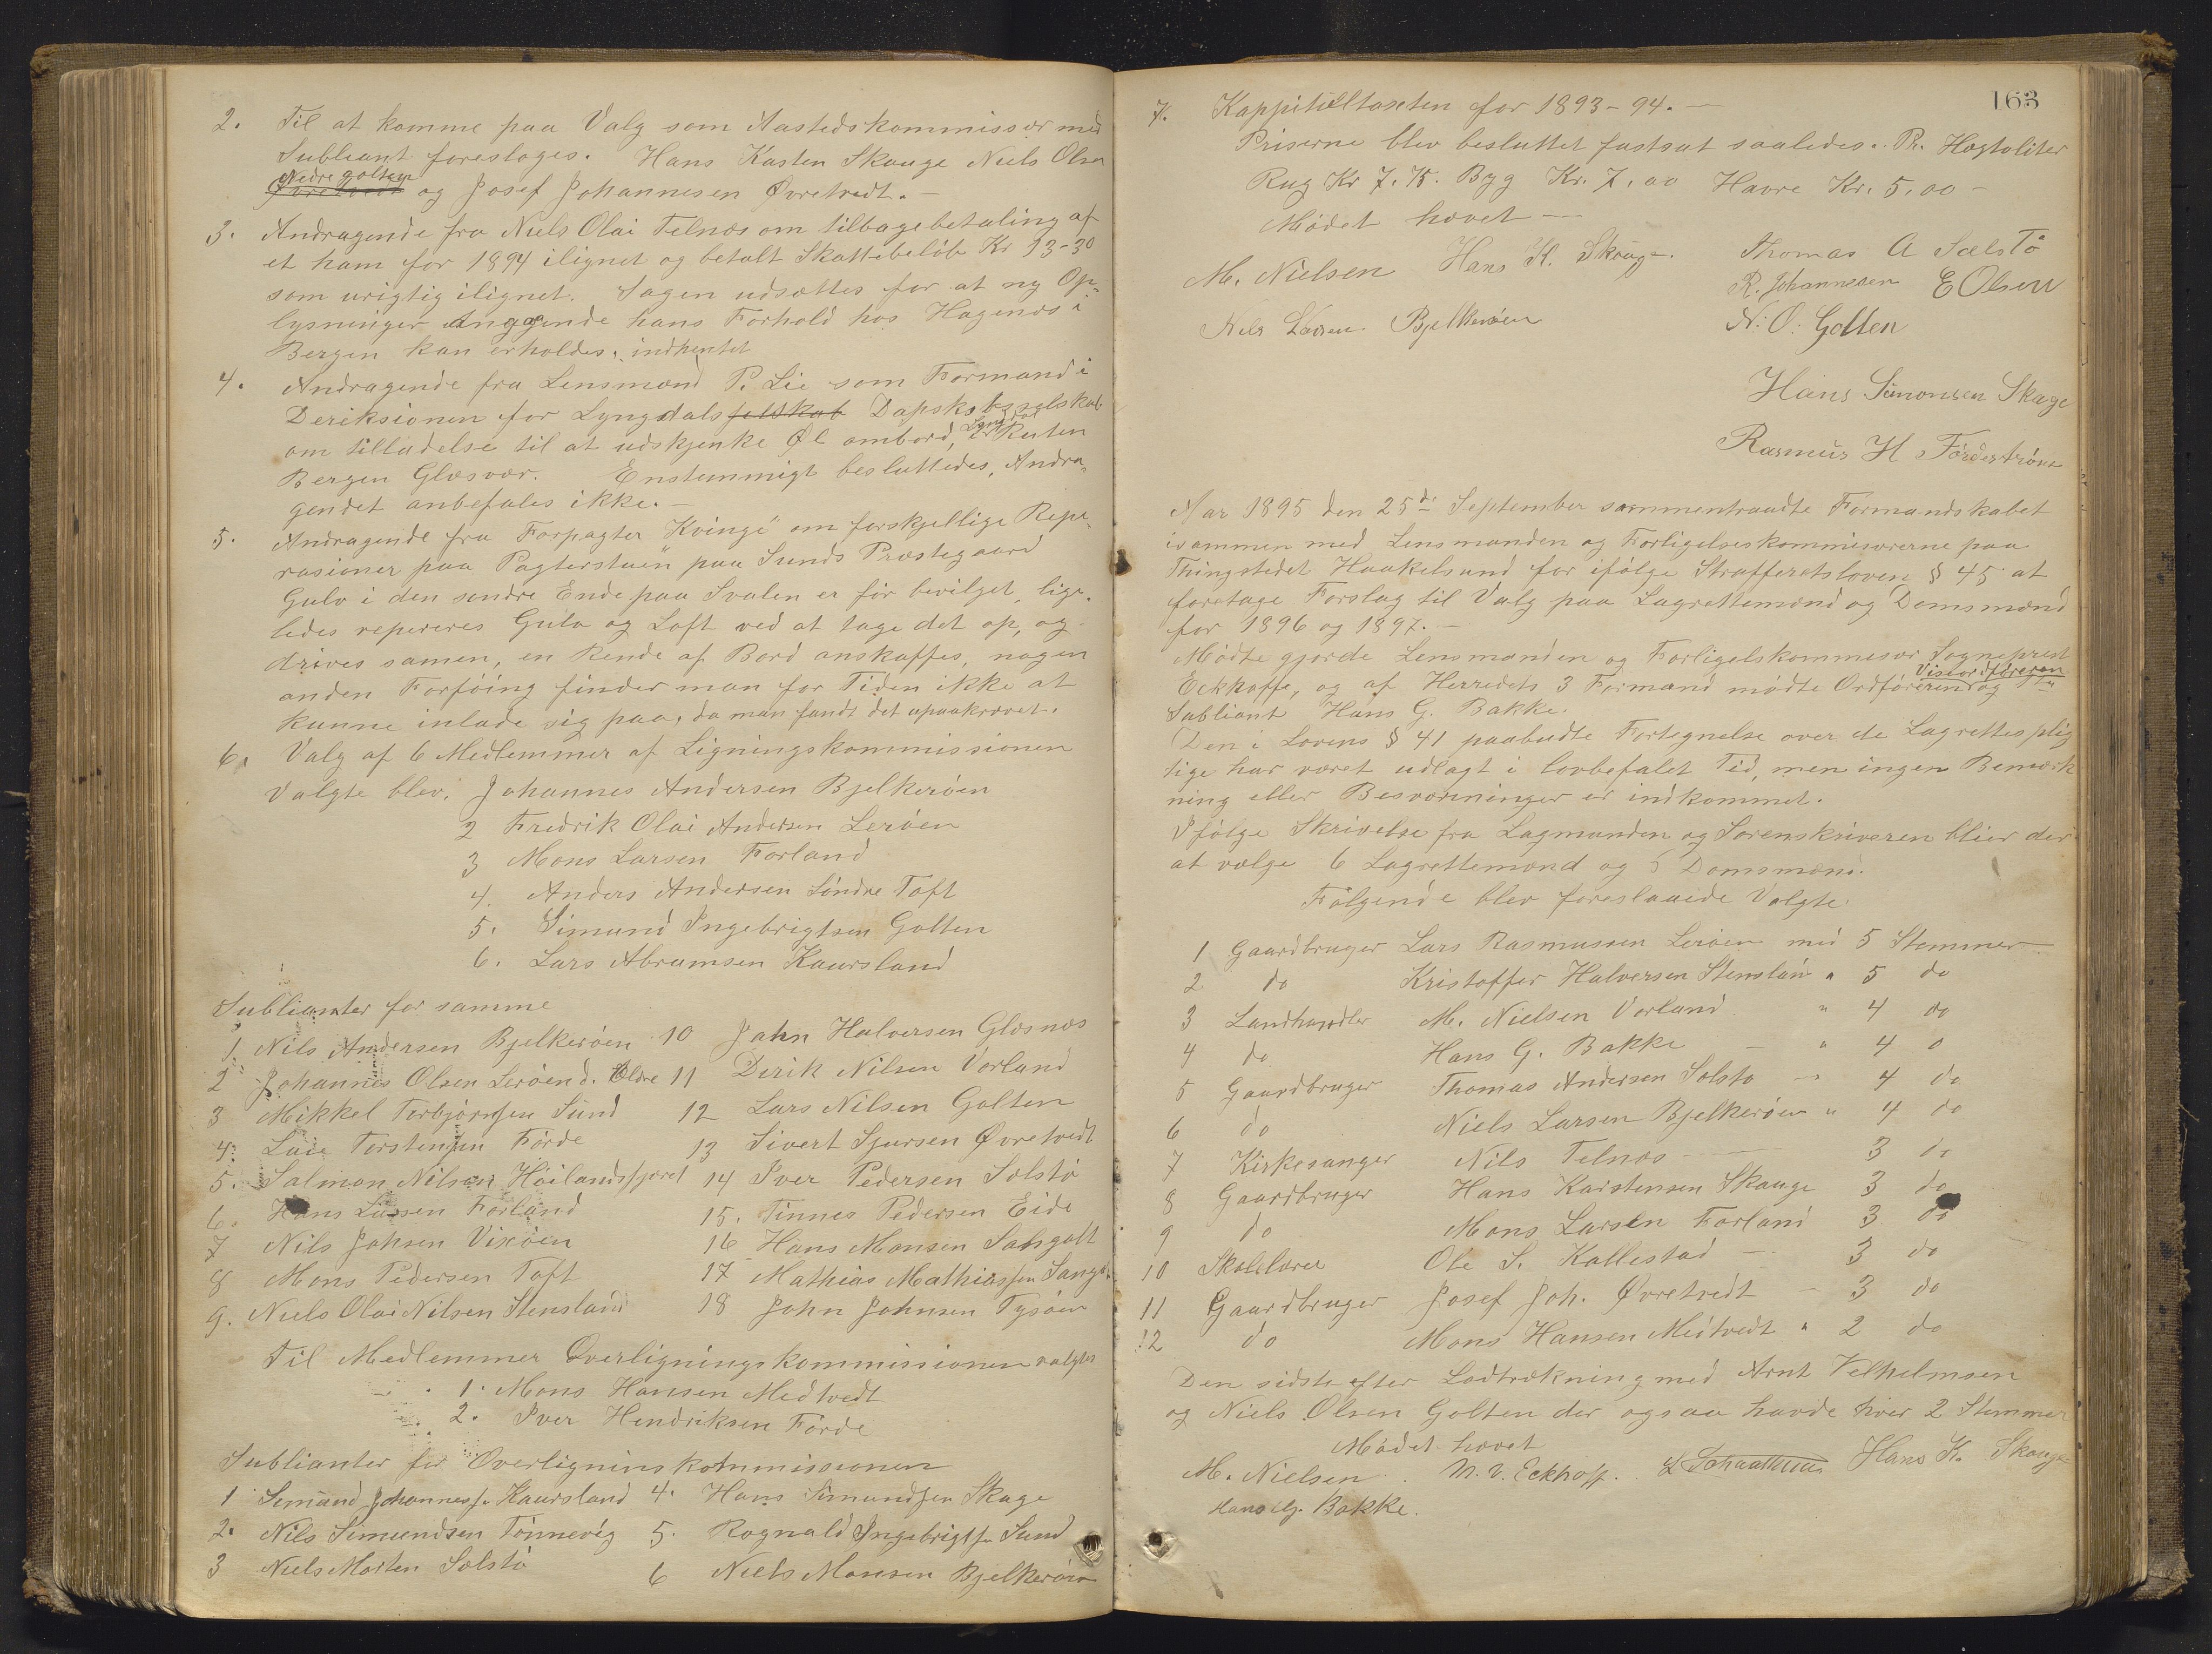 2. Til at komme paa Valg som Aastedskommissær med
Subliant foresloges. Hans Kasten Skauge Niels Olsen
Nedre golten
Øvretvedt og Josef Johannesen Øvretvedt. -
3. Andragende fra Niels Olai Telnæs om tilbagebetaling af
et ham for 1894 ilignet og betalt Skattebeløb Kr 13-30
som urigtig ilignet. Sagen udsættes for at ny Op-
lysninger Anggænde hans Forhold hos Hagenæs i
Bergen kan erholdes. indhentet
4. Andragende fra Lensmand P. Lie som Formand i
Dereksionen for Lyngdals felskab Dapskibsselskab
om tilladelse til at udskjenke Øl ombord, i Ruten
Bergen Glæsvær. Enstemmigt besluttedes, Andra-
gendet anbefales ikke. -
5. Andragende fra Forpagter Kvinge om forskjellige Repe-
rasioner paa Pagterstuen paa Sunds Præstegaard
Gulv i den søndre Ende paa Svalen er før bevilget, lige-
ledes repereres Gulv og Loft ved at tage det op, og
drives samen, en Rende af Bord anskaffes, nogen
anden Forføing finder man for Tiden ikke at
kunne inlade sig paa, da man fandt det upaakrævet.
6. Valg af 6 Medlemmer af Ligningskommissionen
Valgte blev. Johannes Andersen Bjelkerøen
2 Fredrik Olai Andersen Lerøen
3 Mons Larsen Forland
4. Anders Andersen Søndre Toft
5. Simund Ingebrigtsen Golten
6. Lars Abramsen Kaursland
Sublianter for samme
1. Nils Andersen Bjelkerøen 10 John Halversen Glæsnæs
2 Johannes Olsen Lerøen d. Eldre 11 Dirik Nilsen Vorland
3 Mikkel Torbjørnsen Sund 12 Lars Nilsen Golten
4. Laie Torstensen Førde 13 Sivert Sjursen Øvretvedt
5. Salmon Nilsen Høilandsfjoret 14 Iver Pedersen Solstø
6. Hans Larsen Forland 15. Tinnes Pedersen Eide
7 Nils Johsen Vixøen 16 Hans Monsen Sangolt
8 Mons Pedersen Toft 17 Mathias Mathiassen Sangolt
9. Niels Olai Nilsen Stensland 18 John Johnsen Tysøen
Til Medlemmer Overligningskommissionen valgtes
1. Mons Hansen Medtvedt
2. Iver Hendriksen Førde
Sublianter for Overligninskommissionen
1 Simund Johannesse Kaursland 4. Hans Simundsen Skage
2. Nils Simundsen Tønnevig 5. Rognald Ingebrigtse Sund
3 Niels Morten Solstø 6 Niels Monsen Bjelkerøen
163
7. Kappiteltaxten for 1893-94. -
Priserne blev besluttet fastsat saaledes. Pr. Hægtoliter
Rug Kr 7.75. Byg Kr. 7.00 Havre Kr. 5.00 -
Mødet hævet -
M. Nielsen Hans K. Skauge. Thomas A Sælstø
R. Johannessen E Olsen
Nils Larsen Bjelkerøen N. O. Golten
Hans Simonsen Skage
Rasmus H
Aar 1895 den 25de September sammentraadte Formandskabet
isammen med Lensmanden og Forligelseskommisærerne paa
Thingstedet Haakelsund for ifølge Strafferetsloven § 45 at
foretage Forslag til Valg paa Lagrettemænd og Domsmænd
for 1896 og 1897. -
Mødte gjorde Lensmanden og Forligelskommesær Sogneprest
Viseordføreren
Eckhoffe, og af Herredets 3 Formænd mødte Ordføreren og
Subliant Hans G. Bakke.
Den i Lovens § 41 paabudte Fortegnelse over de Lagrettesplig
tige har været udlagt i lovbefalet Tid, men ingen Bemærk
ning eller Besværninger er indkommet.
Ifølge Skrivelse fra Lagmanden og Sorenskriveren bliver der
at vælge 6 Lagrettemænd og 6 Domsmænd.
Følgende blev foreslaaede Valgte
1 Gaardbruger Lars Rasmussen Lerøen med 5 Stemmer
2 do Kristoffer Halversen Stensland " 5 do
3 Landhandler M. Nielsen Vorland " 4 do
4 do Hans G. Bakke - " 4 o
5 Gaardbruger Thomas Andersen Solstø - 4 do
6 do Niels Larsen Bjelkerøen " 4 do
7 Kirkesanger Nils Telnæs - 3 do
8 Gaardbruger Hans Karstensen Skauge 3 do
9 do Mons Larsen Forland 3 do
10 Skolelærer Ole S. Kallestad - 3 do
11 Gaardbruger Josef Joh. Øvretvedt - 3 do
12 do Mons Hansen Medtvedt " 2 do
Den sidste efter Lodtrækning med Arnt Velhelmsen
og Niels Olsen Golten der ogsaa havde hver 2 Stemmer
Mødet hævet
M. Nielsen. N. V. Eckhoff. Hans K. Skauge
Hans G. Bakke.